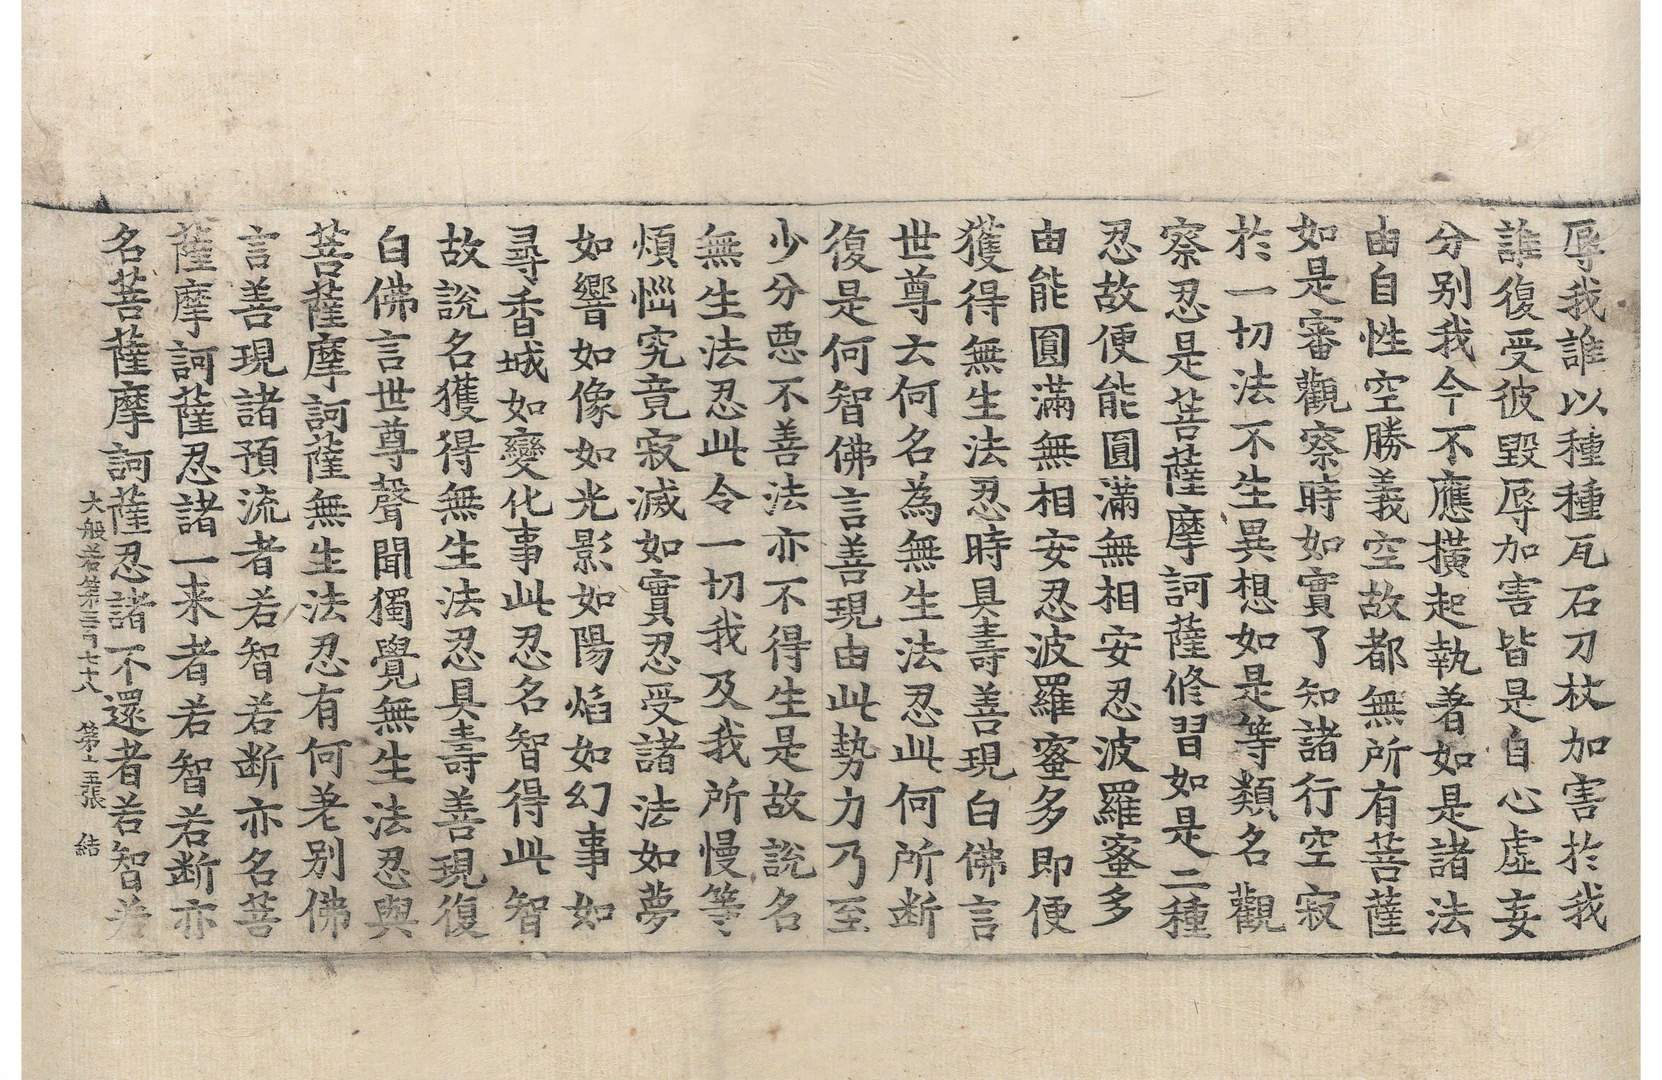 辱我誰以種種瓦石刀杖加害於我
誰復受彼毀辱加害皆是自心虛妄
分別我今不應橫起執著如是諸法
由自性空勝義空故都無所有菩薩
如是審觀察時如實了知諸行空寂
於一切法不生異想如是等類名觀
察忍是菩薩摩訶薩修習如是二種
忍故便能圓滿無相安忍波羅蜜多
由能圓滿無相安忍波羅蜜多即便
獲得無生法忍時具壽善現白佛言
世尊云何名為無生法忍此何所斷
復是何智佛言善現由此勢力乃至
少分惡不善法亦不得生是故說名
無生法忍此令一切我及我所慢等
煩惱究竟寂滅如實忍受諸法如夢
如響如像如光影如陽焰如幻事如
尋香城如變化事此忍名智得此智
故說名獲得無生法忍具壽善現復
白佛言世尊聲聞獨覺無生法忍與
菩薩摩訶薩無生法忍有何差別佛
言善現諸預流者若智若断亦名菩
薩摩訶薩忍諸一来者若智若断亦
名菩薩摩訶薩忍諸不還者若智若
大般若第三百七十八　第十五張　結